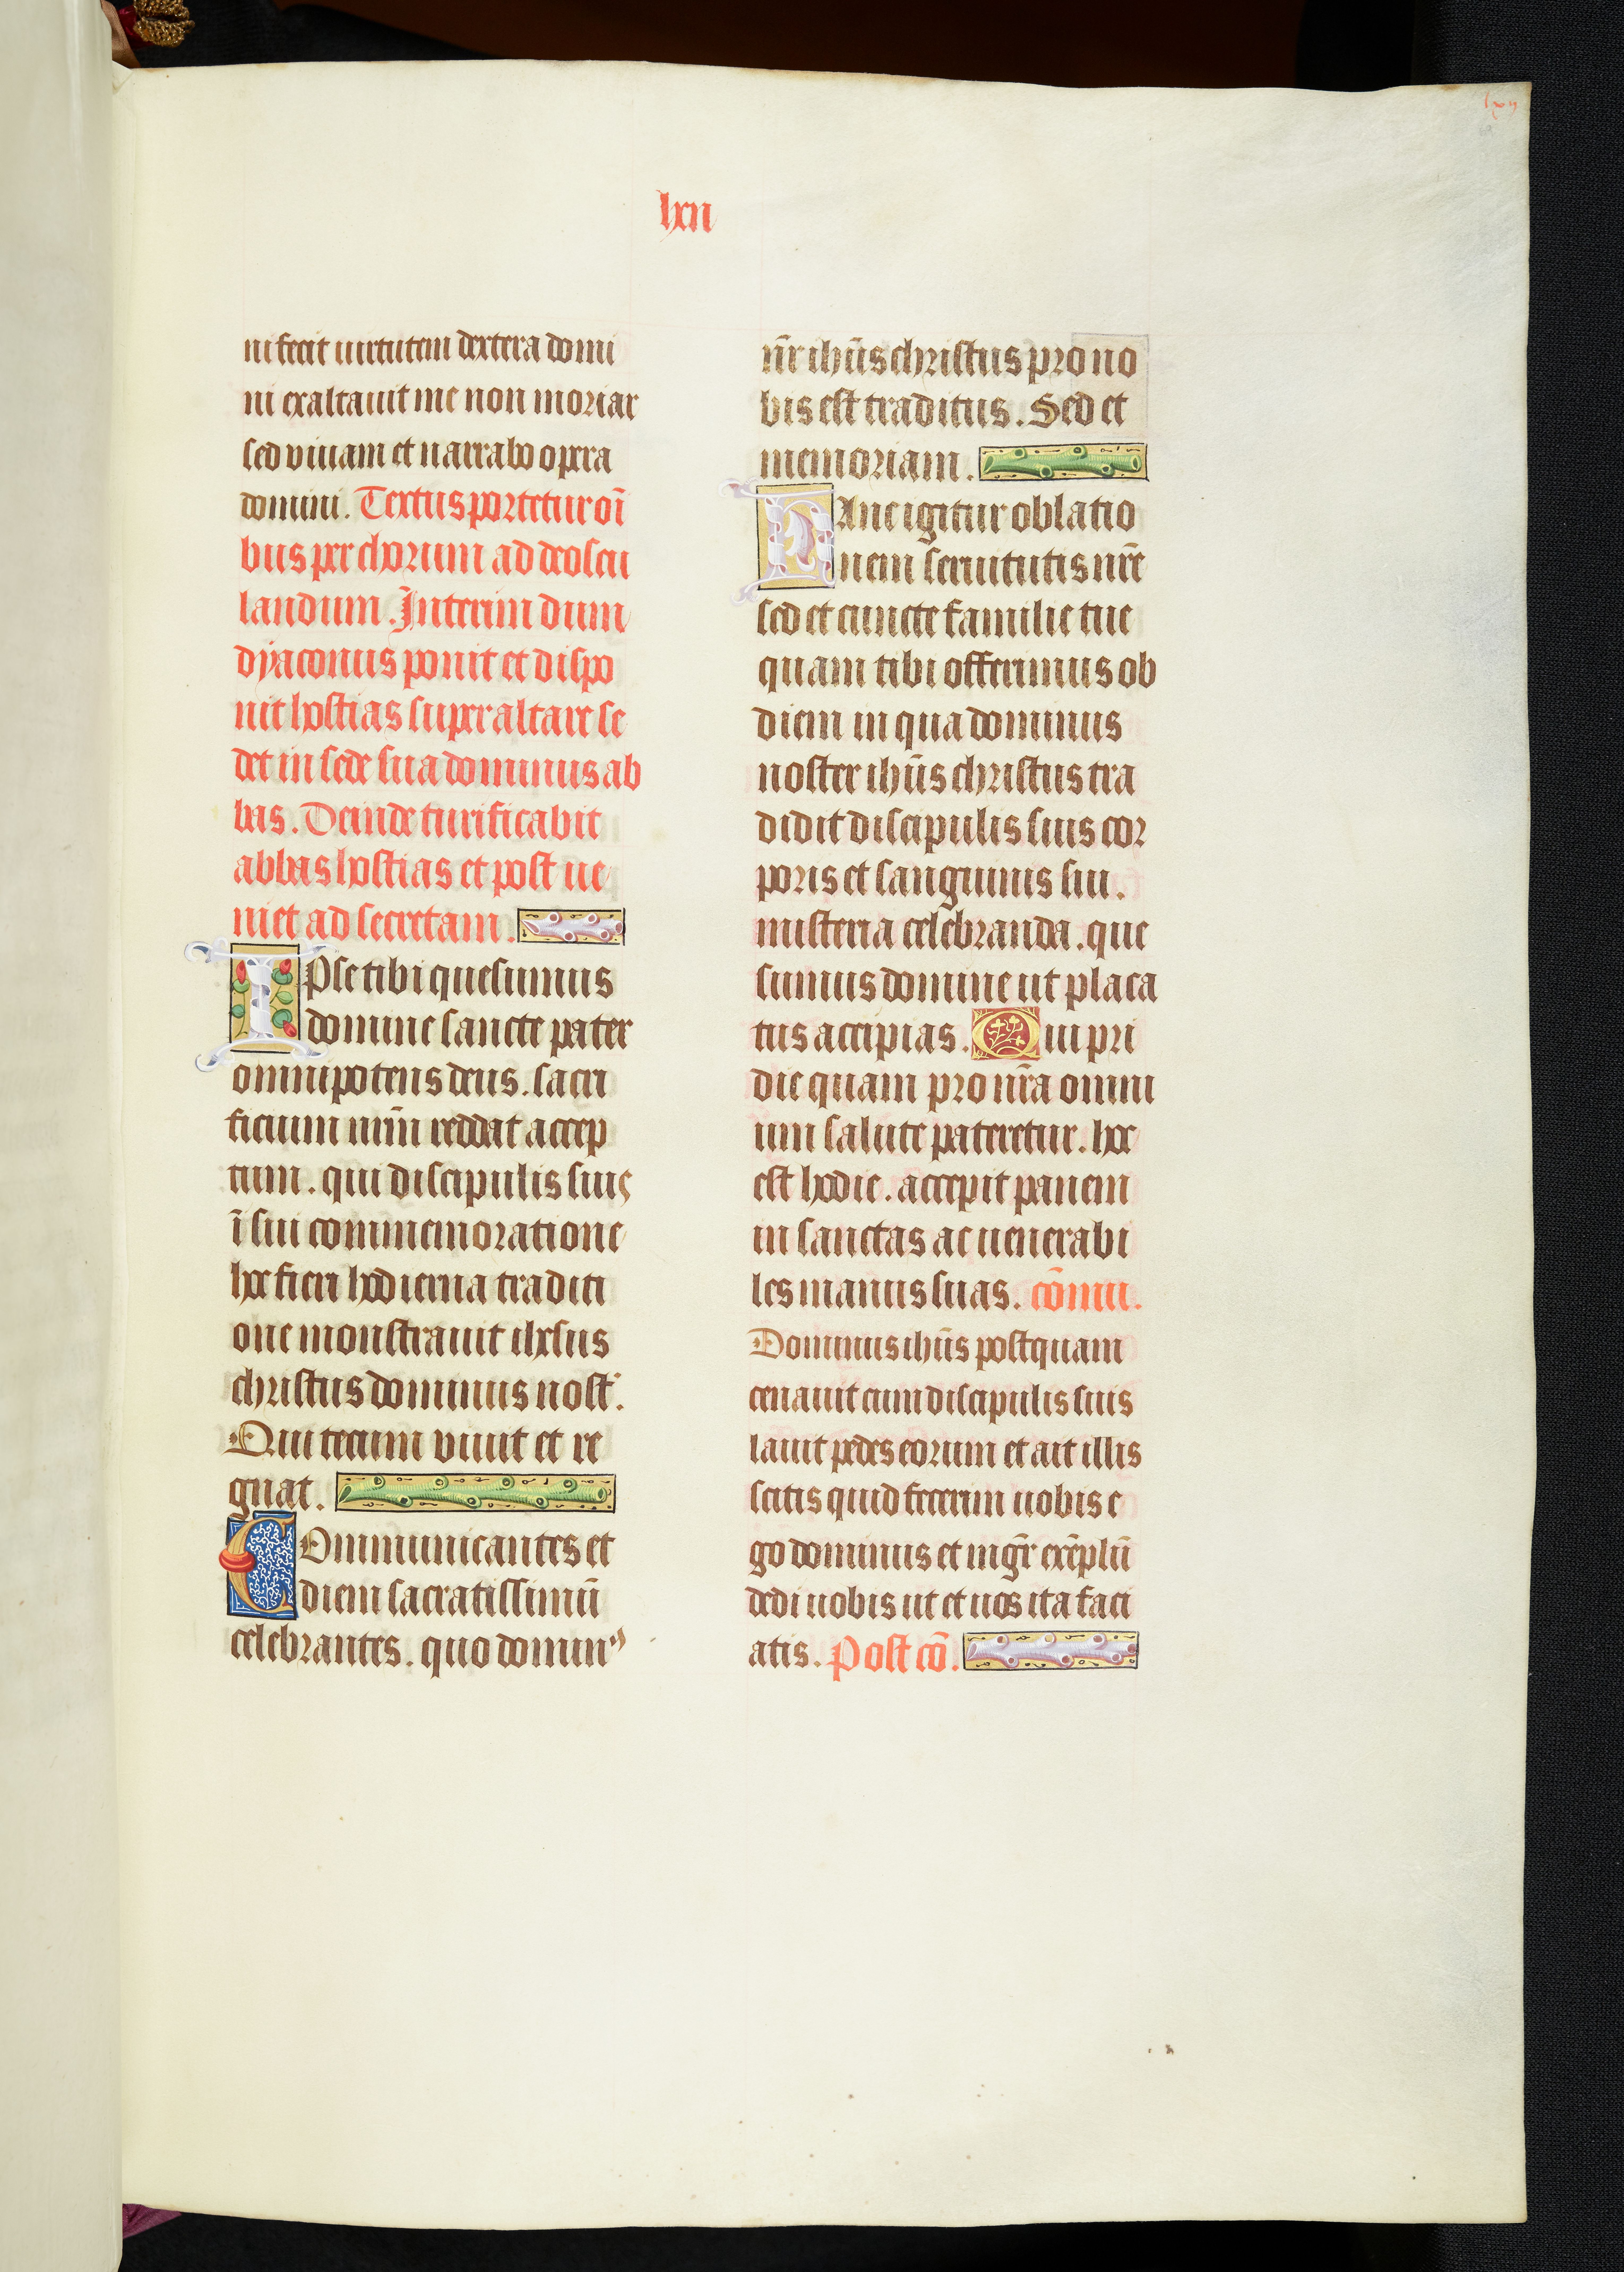 lxii
lxii
ni fecit uirtutem dextera domi
ni exaltauit me non moriar
sed viuam et narrabo opera
domini. Textus portetur oī
bus per chorum ad deoscu
landum. Interim dum
dyaconus ponit et dispo
nit hostias super altare se
det in sede sua dominus ab
bas. Deinde turificabit
abbas hostias et post ue
niet ad secretam.
IPse tibi quesumus
domine sancte pater
omnipotens deus. sacri
ficium nr̄m reddat accep
tum. qui discipulis suis
ī sui commemoratione
hoc fieri hodierna traditi
one monstrauit ihesus
christus dominus nost᷑.
Qui tecum viuit et re
gnat.
COmmunicantes et
diem sacratissimū
celebrantes. quo domin⁹
nr̄ ihūs christus pro no
bis est traditus. Sed et
memoriam.
HAnc igitur oblatio
nem seruitutis nr̄e
sed et cuncte familie tue
quam tibi offerimus ob
diem in qua dominus
noster ihūs christus tra
didit discipulis suis cor
poris et sanguinis sui.
misteria celebranda. que
sumus domine ut placa
tus accipias. Qui pri
die quam pro nr̄a omni
um salute pateretur. hoc
est hodie. accepit panem
in sanctas ac uenerabi
les manus suas. cōmu.
Dominus ihūs postquam
cenauit cum discipulis suis
lauit pedes eorum et ait illis
scitis quid fecerim uobis e
go dominus et mgr̄ exēplū
dedi uobis ut et uos ita faci
atis. Post cō.